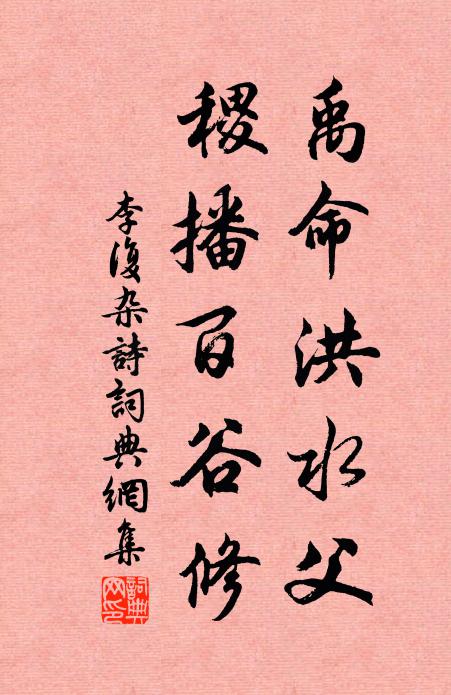 禹命洪水父
稷播百谷修
李復杂詩詞典網集
詞典
网印